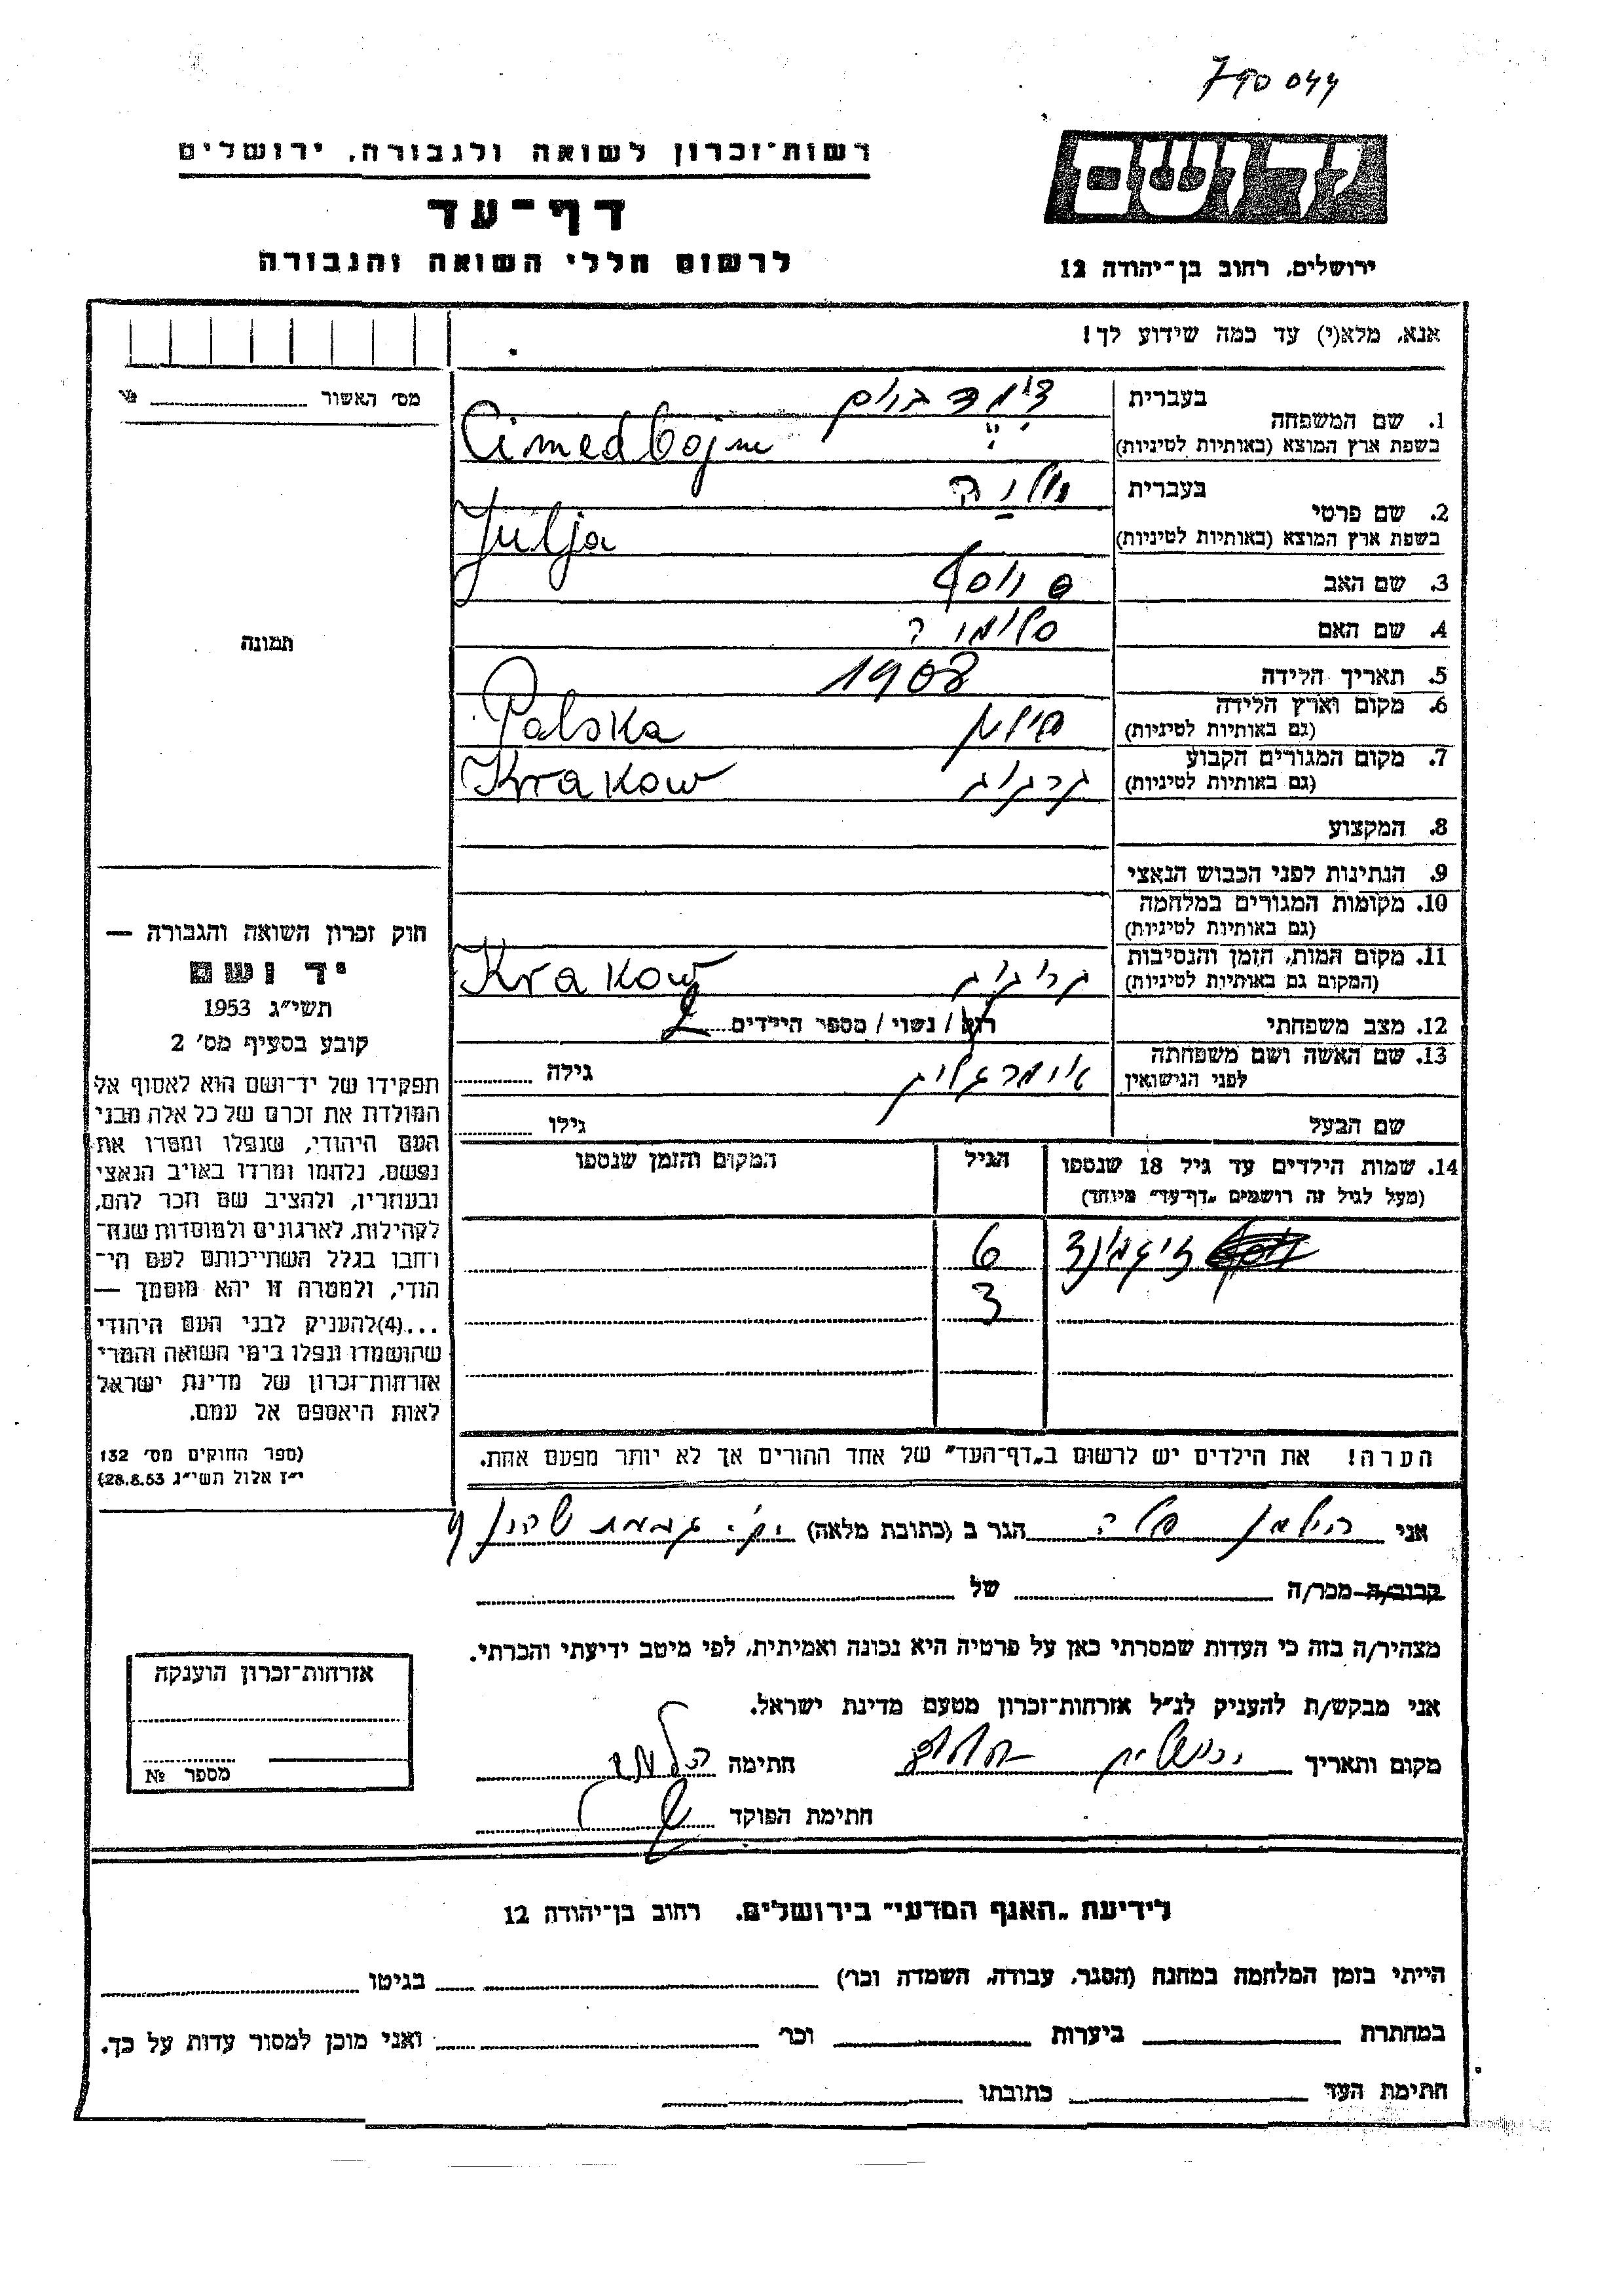 790044
רשות־זכרון לשואה ולגבורה, ירושלים
יד ושם
דף־עד
לרשום חללי השואה והגבורה
ירושלים, רחוב בן־יהודה 12
אנא, מלא(י) עד כמה שידוע לך!
מס' האשור №
1. שם המשפחה
בעברית צימדבוים
בשפת ארץ המוצא (באותיות לטיניות) Cimedbojm
2. שם פרטי
בעברית
בשפת ארץ המוצא (באותיות לטיניות) Julja
3. שם האב יוסף
4. שם האם
5. תאריך הלידה 1908
6. מקום וארץ הלידה
(גם באותיות לטיניות) פולין Polska
7. מקום המגורים הקבוע
(גם באותיות לטיניות) קרקוב Krakow
8. המקצוע
9. הנתינות לפני הכבוש הנאצי
10. מקומות המגורים במלחמה
(גם באותיות לטיניות)
11. מקום המות, הזמן והנסיבות
(המקום גם באותיות לטיניות) קרקוב Krakow
12. מצב משפחתי רוק / נשוי / מספר הילדים 2
13. שם האשה ושם משפחתה
לפני הנישואין גילה
שם הבעל גילו
14. שמות הילדים עד גיל 18 שנספו
(מעל לגיל זה רושמים „דף־עד" מיוחד)
הגיל
המקום והזמן שנספו
זיגמונד 6
3
הערה! את הילדים יש לרשום ב„דף־העד" של אחד ההורים אך לא יותר מפעם אחת.
תמונה
חוק זכרון השואה והגבורה —
יד ושם
תשי"ג 1953
קובע בסעיף מס' 2
תפקידו של יד־ושם הוא לאסוף אל
המולדת את זכרם של כל אלה מבני
העם היהודי, שנפלו ומסרו את
נפשם, נלחמו ומרדו באויב הנאצי
ובעוזריו, ולהציב שם וזכר להם,
לקהילות, לארגונים ולמוסדות שנח־
רבו בגלל השתייכותם לעם הי־
הודי, ולמטרה זו יהא מוסמך —
...(4)להעניק לבני העם היהודי
שהושמדו ונפלו בימי השואה והמרי
אזרחות־זכרון של מדינת ישראל
לאות היאספם אל עמם.
(ספר החוקים מס' 132
י"ז אלול תשי"ג 28.8.53)
אני הילמן הגר ב (כתובת מלאה) 9
קרוב/ה מכר/ה של
מצהיר/ה בזה כי העדות שמסרתי כאן על פרטיה היא נכונה ואמיתית, לפי מיטב ידיעתי והכרתי.
אני מבקש/ת להעניק לנ"ל אזרחות־זכרון מטעם מדינת ישראל.
מקום ותאריך ירושלים חתימה
חתימת הפוקד
אזרחות־זכרון הוענקה
מספר №
לידיעת „האגף המדעי" בירושלים, רחוב בן־יהודה 12
הייתי בזמן המלחמה במחנה (הסגר, עבודה, השמדה וכו') בגיטו
במחתרת ביערות וכו' ואני מוכן למסור עדות על כך.
חתימת העד כתובתו